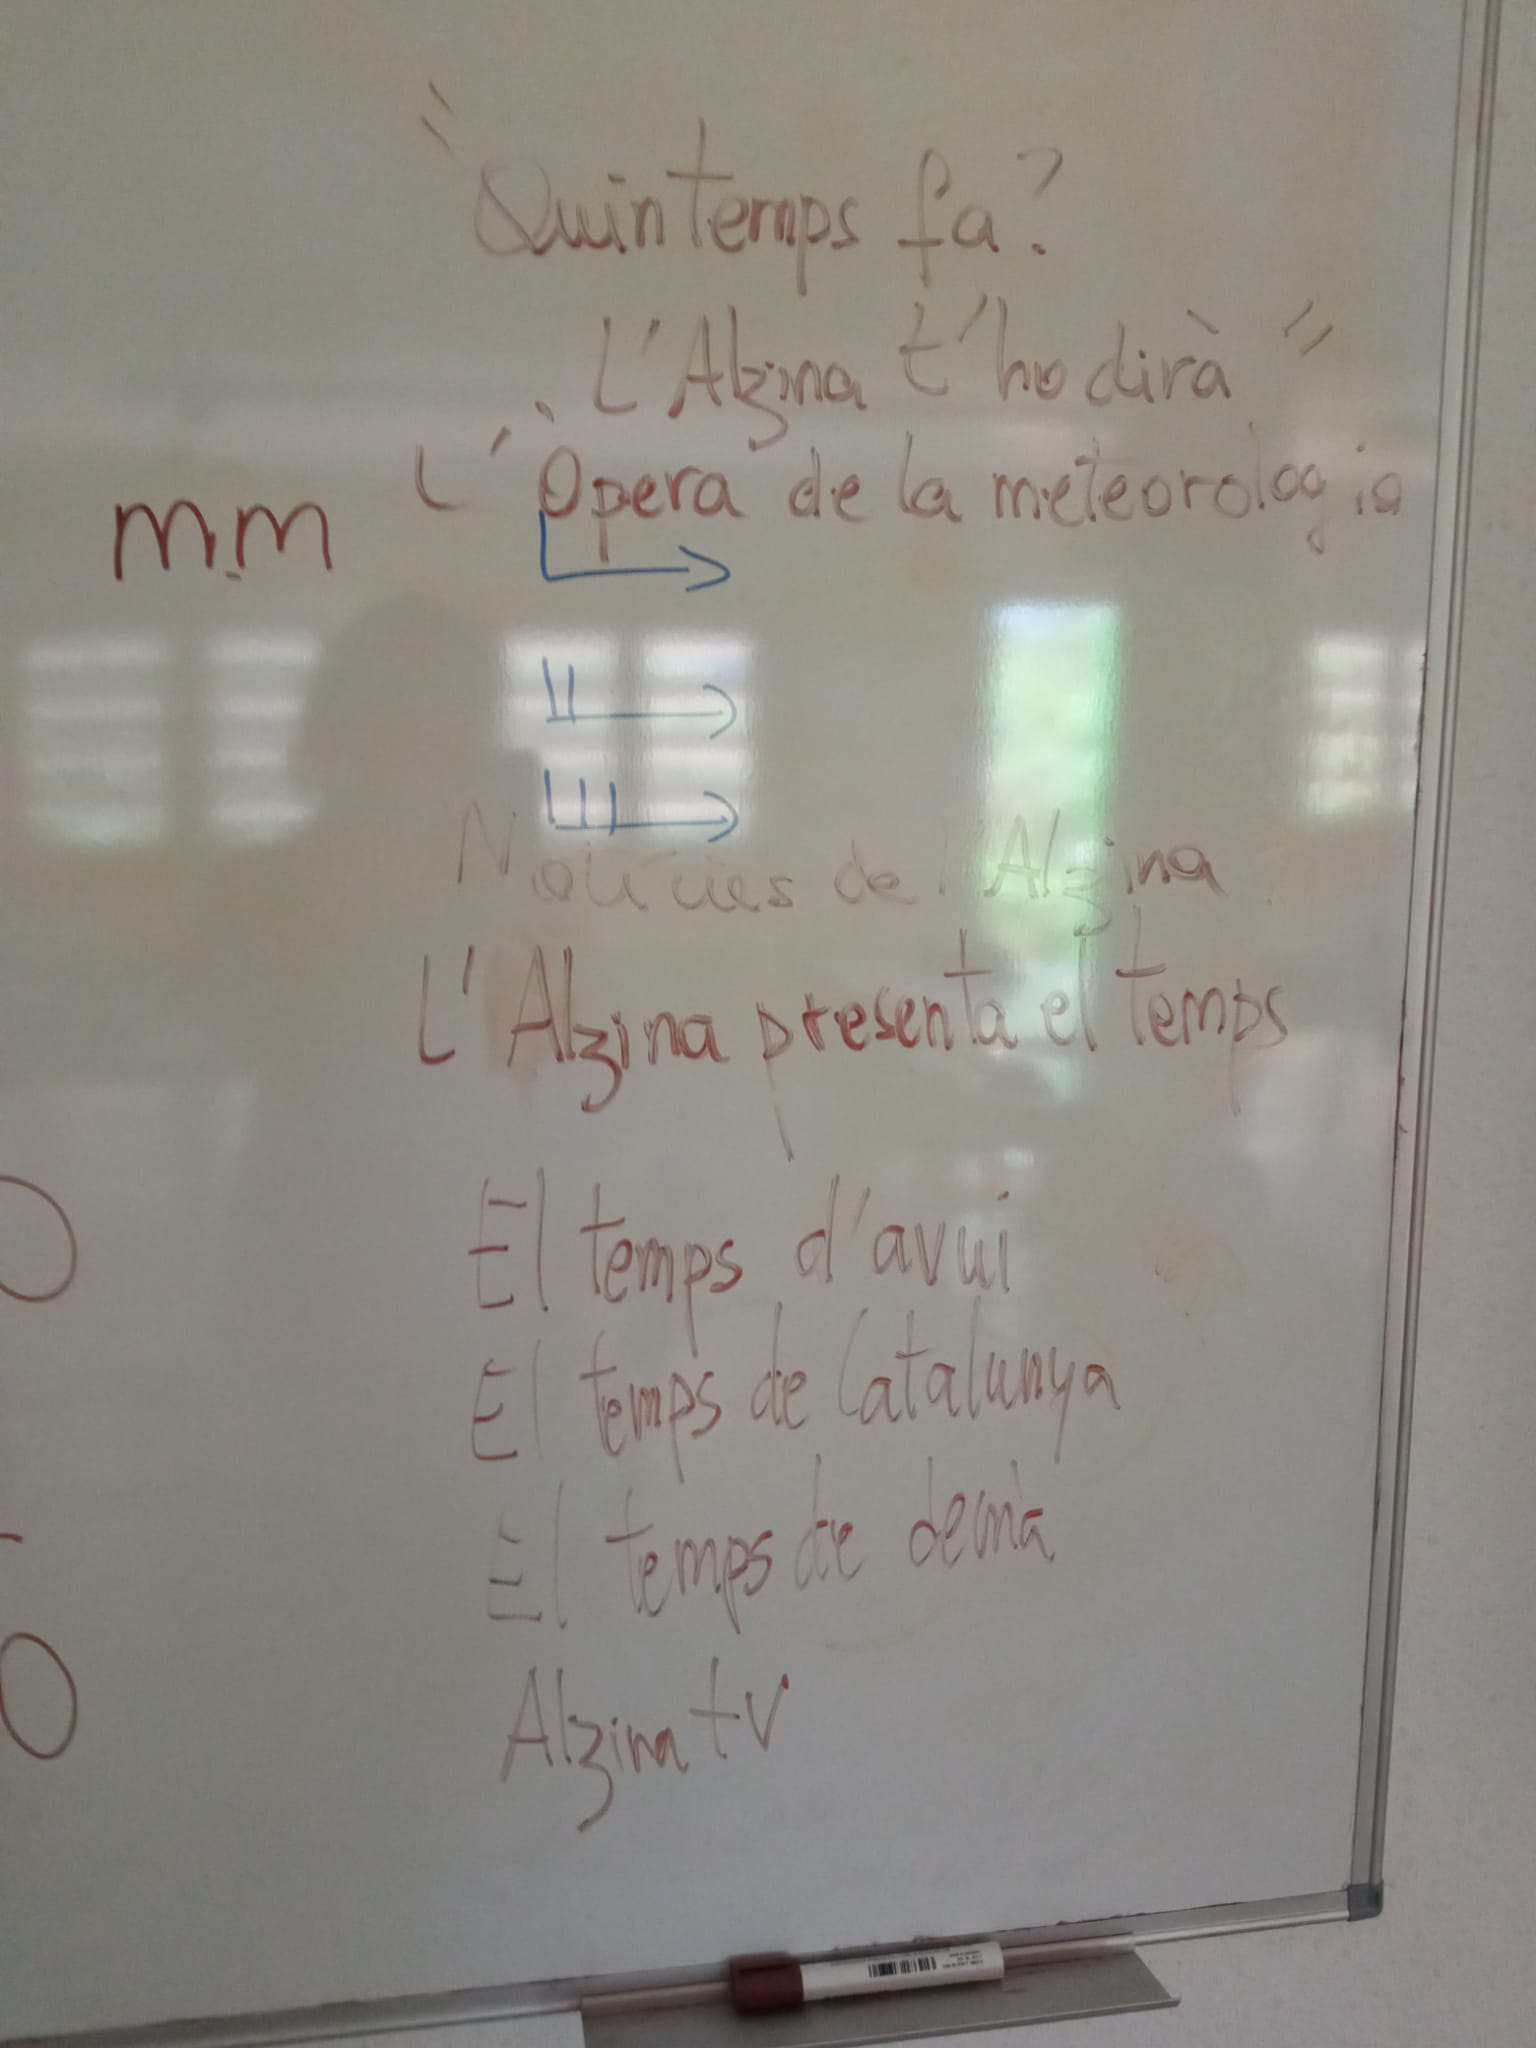 "Quin temps fa?
L'Alzina t'ho dirà"
L'Òpera de la meteorologia
mm
Notícies de l'Alzina
L'Alzina presenta el temps
El temps d'avui
El temps de Catalunya
El temps de demà
Alzina tv